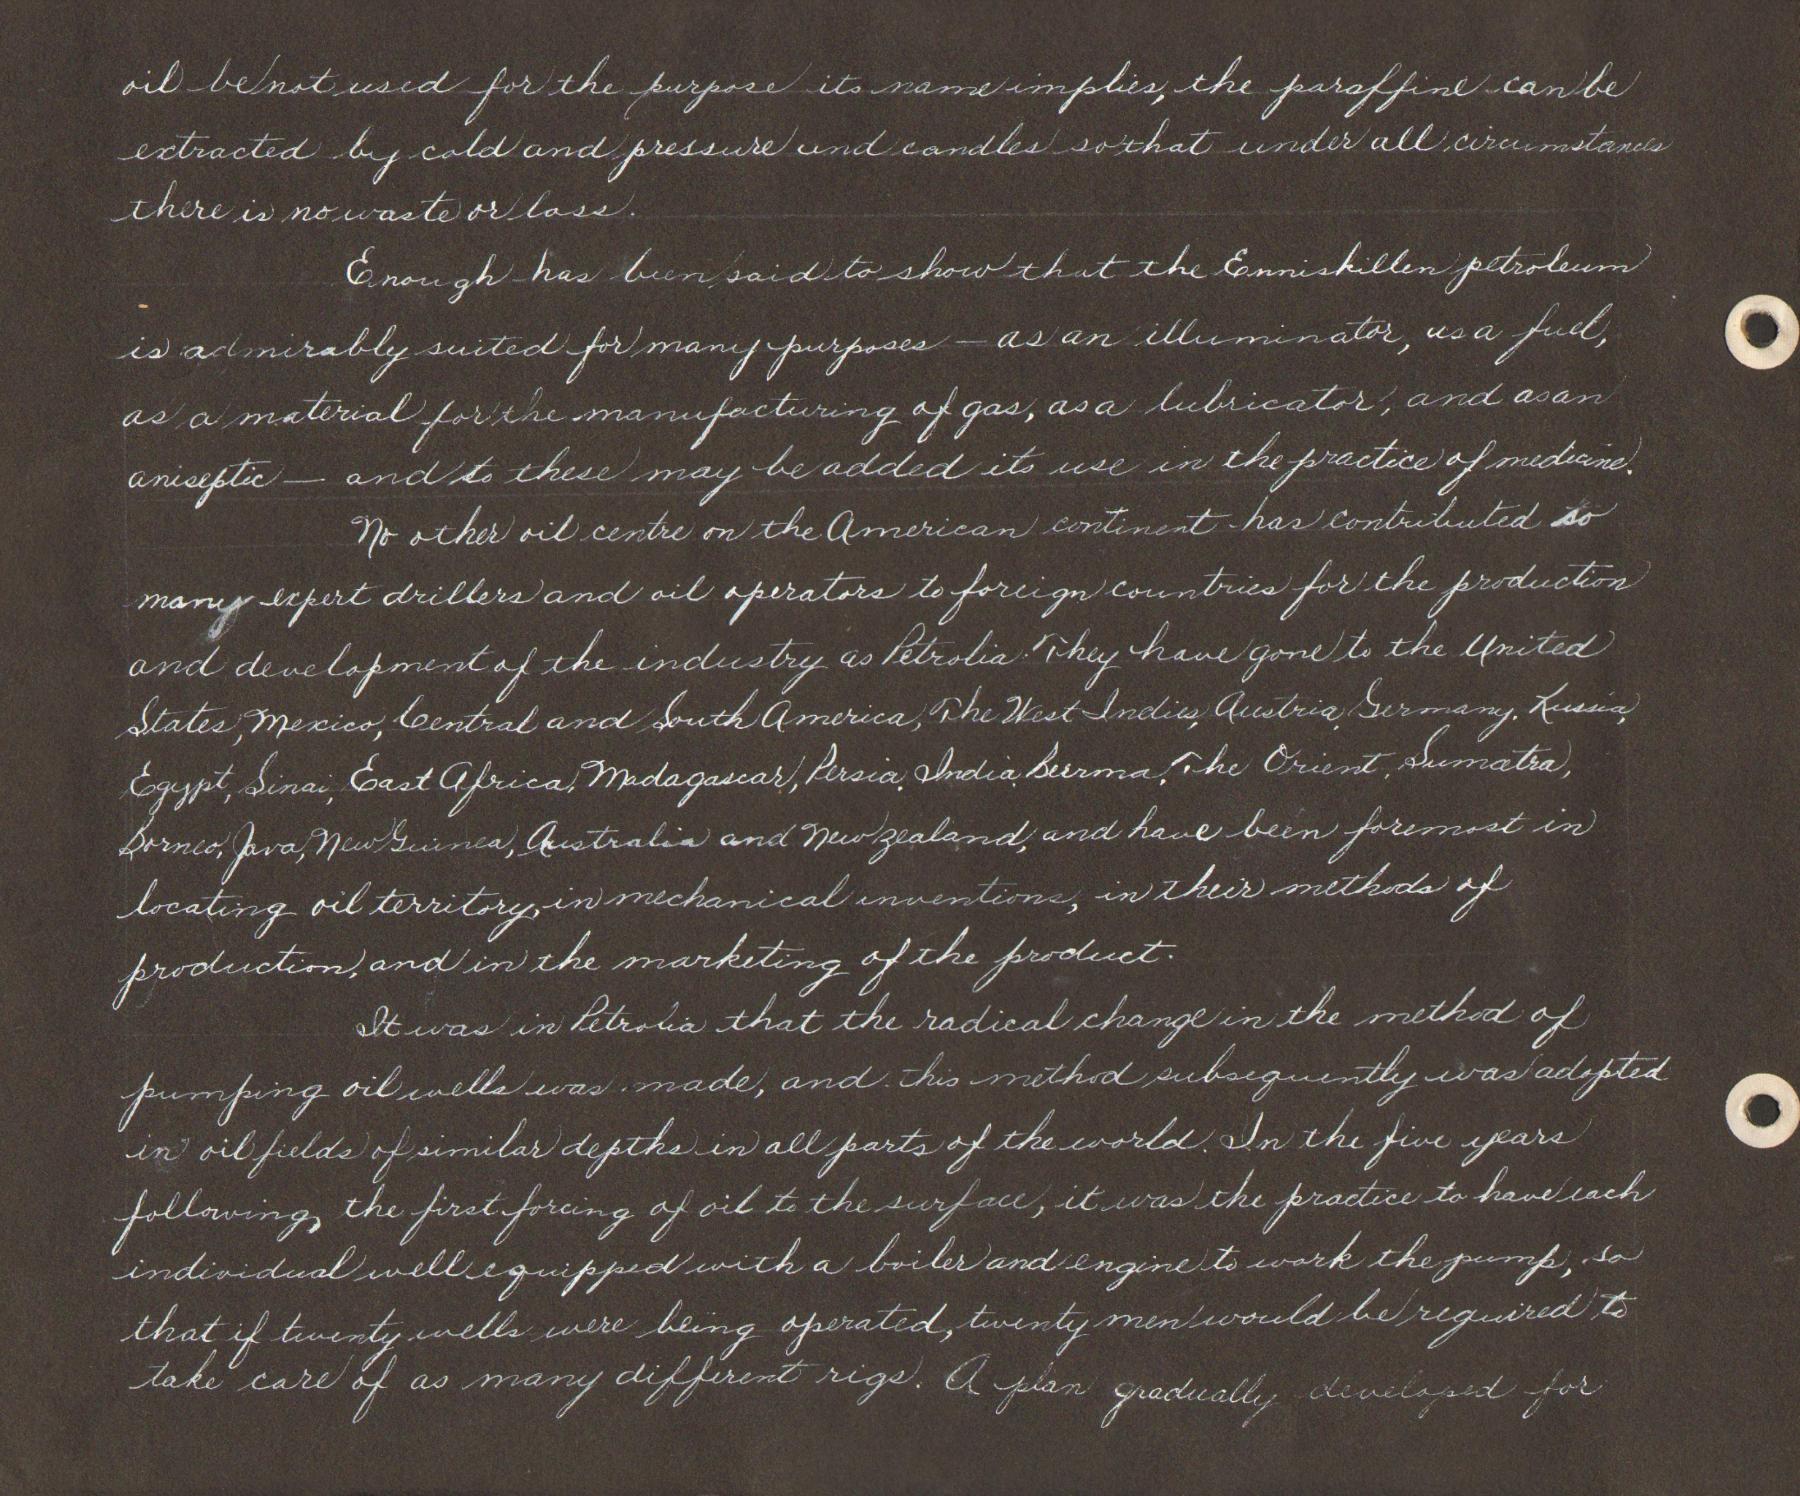 oil be not used for the purpose its name implies, the paraffine can be
extracted by cold and pressure and candles so that under all circumstances
there is no waste or loss.
Enough has been said to show that the Enniskillen petroleum
is admirably suited for many purposes — as an illuminator, as a fuel,
as a material for the manufacturing of gas, as a lubricator, and as an
aniseptic — and to these may be added its use in the practice of medicine.
No other oil centre on the American continent has contributed so
many expert drillers and oil operators to foreign countries for the production
and development of the industry as Petrolia. They have gone to the United
States, Mexico, Central and South America, The West Indies, Austria, Germany, Russia,
Egypt, Sinai, East Africa, Madagascar, Persia, India, Burma, The Orient, Sumatra,
Borneo, Java, New Guinea, Australia and New Zealand, and have been foremost in
locating oil territory, in mechanical inventions, in their methods of
production, and in the marketing of the product.
It was in Petrolia that the radical change in the method of
pumping oil wells was made, and this method subsequently was adopted
in oil fields of similar depths in all parts of the world. In the five years
following, the first forcing of oil to the surface, it was the practice to have each
individual well equipped with a boiler and engine to work the pump, so
that if twenty wells were being operated, twenty men would be required to
take care of as many different rigs. A plan gradually developed for